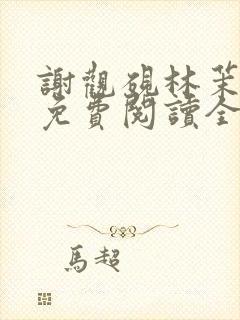 謝觀硯林茉
免費閱讀全
馬超